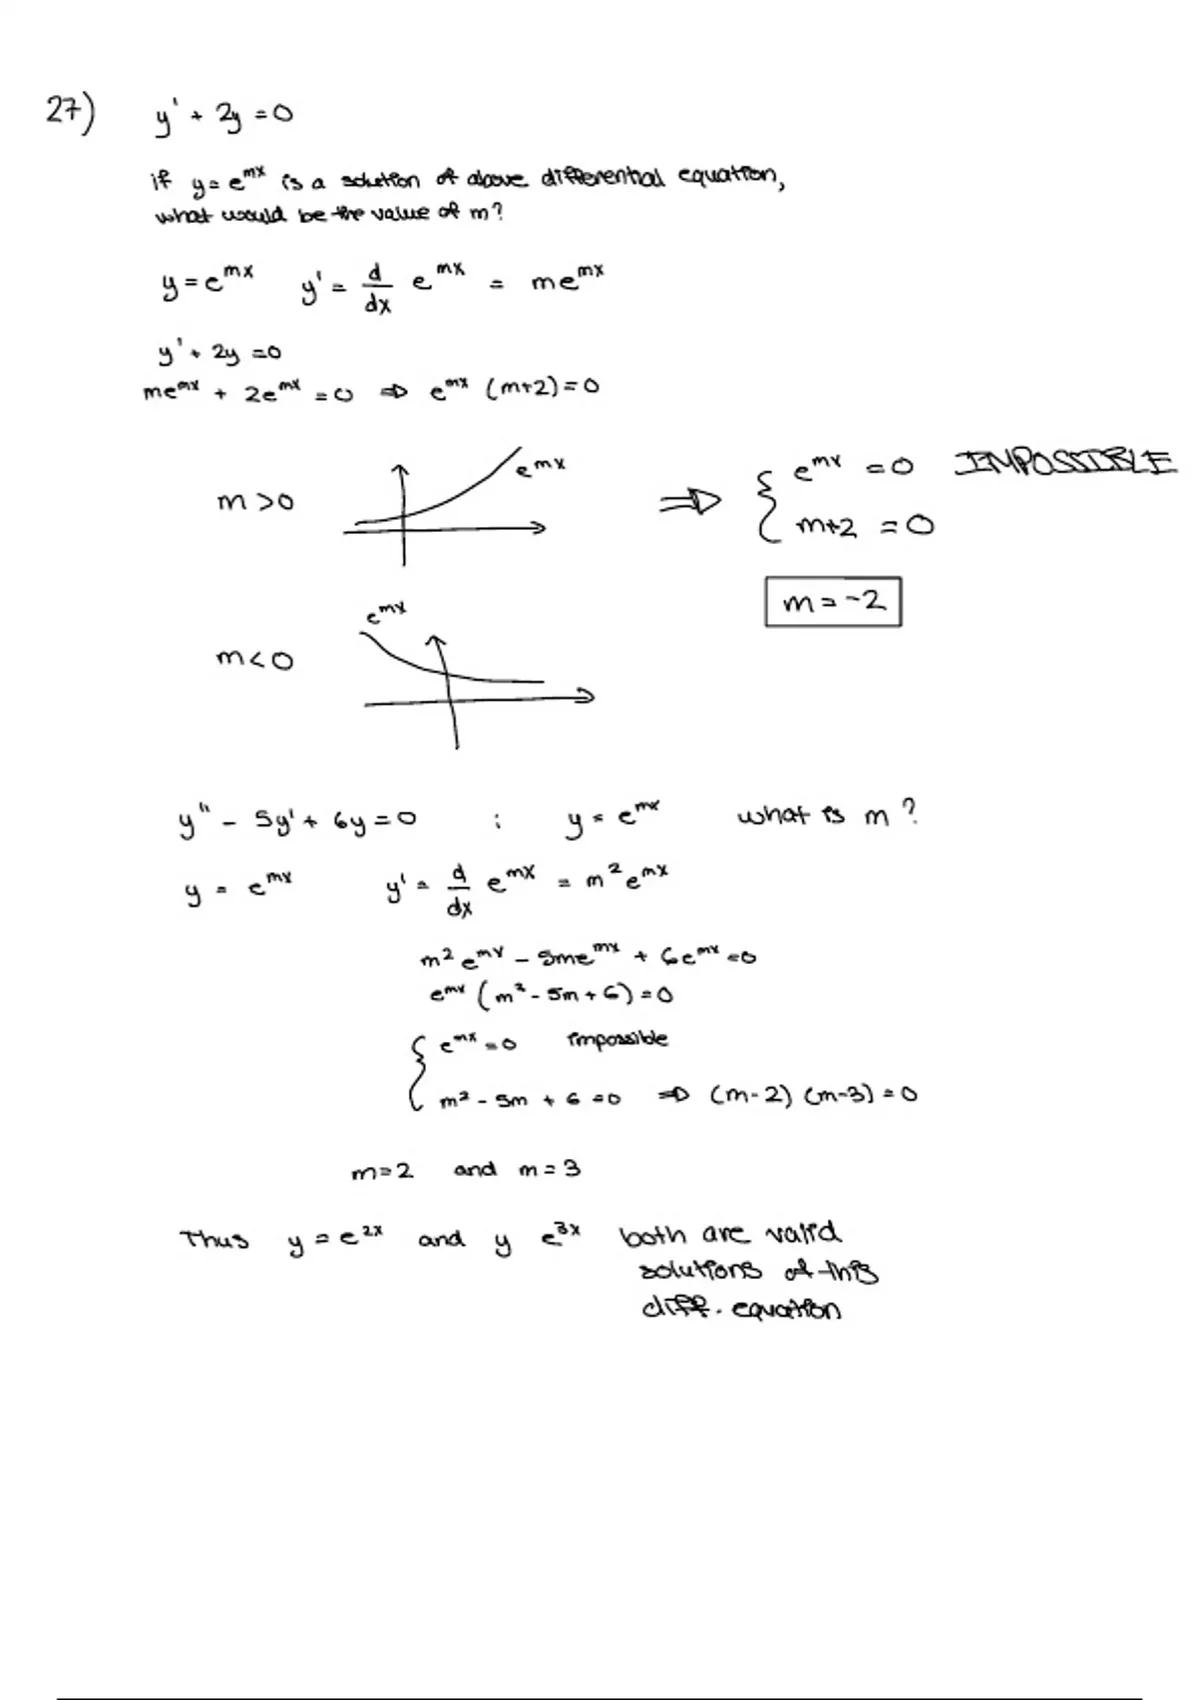 27) y' + 2y = 0
if y = e^{mx} is a solution of above differential equation,
what would be the value of m?
y = e^{mx} y' = \frac{d}{dx} e^{mx} = me^{mx}
y' + 2y = 0
me^{mx} + 2e^{mx} = 0 ⇒ e^{mx} (m+2) = 0
m > 0
e^{mx}
⇒ { e^{mx} = 0 IMPOSSIBLE
m+2 = 0
m = -2
e^{mx}
m < 0
y'' - 5y' + 6y = 0 ; y = e^{mx} what is m?
y = e^{mx} y' = \frac{d}{dx} e^{mx} = m^2 e^{mx}
m^2 e^{mx} - 5me^{mx} + 6e^{mx} = 0
e^{mx} (m^2 - 5m + 6) = 0
{ e^{mx} = 0 impossible
m^2 - 5m + 6 = 0 ⇒ (m-2) (m-3) = 0
m = 2 and m = 3
Thus y = e^{2x} and y e^{3x} both are valid
solutions of this
diff. equation